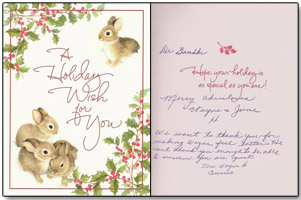 A
Holiday
Wish
for
You
Dr.
Hope your holiday is
as special as you are!
Merry Christmas
Wayne & June
We want to thank you for
making Wayne feel better. We
can't thank you enough to be able
to You are great.